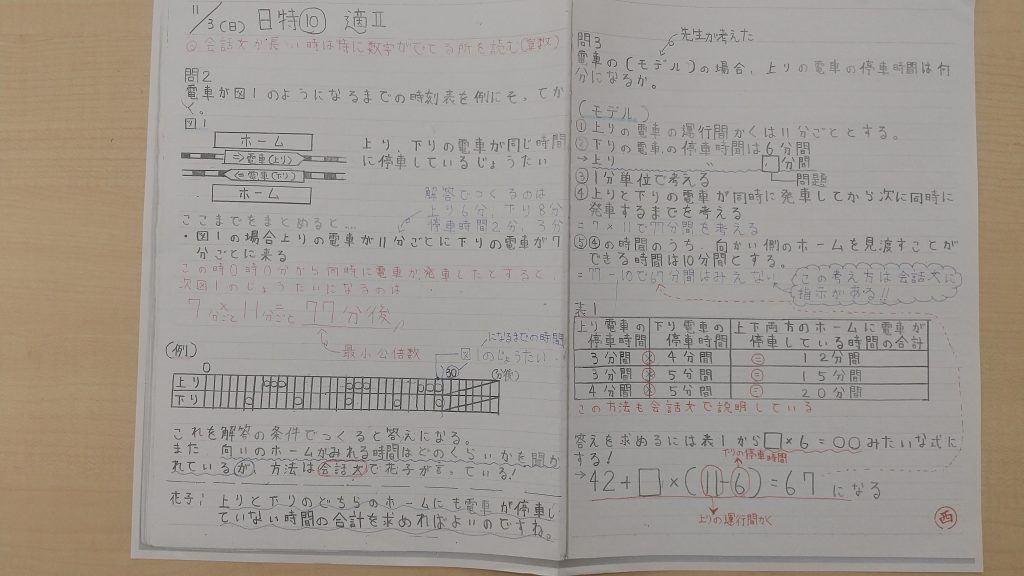 11/3(日) 日特⑩ 適Ⅱ
◎会話文が長い時は特に数字がでてる所を読む(算数)
問2
電車が図1のようになるまでの時刻表を例にそってかく。
図1
ホーム
⇒電車(上り)
⇐電車(下り)
ホーム
上り、下りの電車が同じ時間
に停車しているじょうたい
解答でつくるのは
上り6分、下り8分
停車時間2分、3分
ここまでをまとめると…
・図1の場合上りの電車が11分ごとに下りの電車が7
分ごとに来る
この時0時0分から同時に電車が発車したとすると、
次図1のじょうたいになるのは
7分ごと×11分ごと=77分後
最小公倍数
になるまでの時間
図1のじょうたい
(例)
0
30
(分後)
上り
下り
これを解答の条件でつくると答えになる。
また 向いのホームがみれる時間はどのくらいかを聞か
れている(が) 方法は会話文で花子が言っている!
花子: 上りと下りのどちらのホームにも電車が停車し
ていない時間の合計を求めればよいのですね。
問3
先生が考えた
電車の(モデル)の場合、上りの電車の停車時間は何
分になるか。
(モデル)
①上りの電車の運行間かくは11分ごととする。
②下りの電車の停車時間は6分間
→上り 〃 □分間
問題
③1分単位で考える
④上りと下りの電車が同時に発車してから次に同時に
発車するまでを考える
=7×11で77分間を考える
⑤④の時間のうち、向かい側のホームを見渡すことが
できる時間は10分間とする。
=77-10で67分間はみえない
この考え方は会話文に
指示がある!!
表1
上り電車の停車時間 下り電車の停車時間 上下両方のホームに電車が停車している時間の合計
3分間 × 4分間 = 12分間
3分間 × 5分間 = 15分間
4分間 × 5分間 = 20分間
この方法も会話文で説明している
答えを求めるには表1から□×6=○○みたいな式に
する!
下りの停車時間
→42+□×(11-6)=67 になる
上りの運行間かく
西